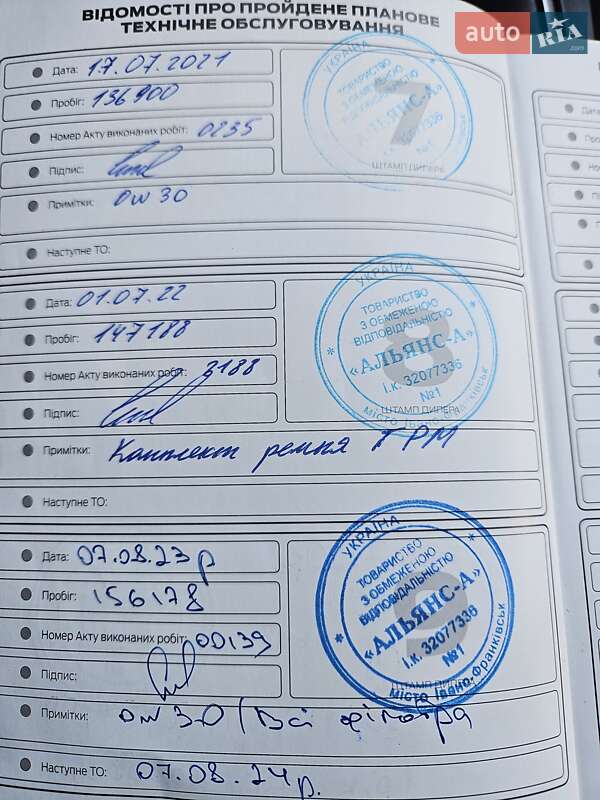 ВІДОМОСТІ ПРО ПРОЙДЕНЕ ПЛАНОВЕ
ТЕХНІЧНЕ ОБСЛУГОВУВАННЯ
auto RIA .com
Дата: 17.07.2021
Пробіг: 136900
Номер Акту виконаних робіт: 0235
Підпис:
Примітки: OW 30
Наступне ТО:
7
УКРАЇНА
ТОВАРИСТВО
З ОБМЕЖЕНОЮ
ШТАМП ДИЛЕРА
Дата: 01.07.22
Пробіг: 147188
Номер Акту виконаних робіт: 3188
Підпис:
Примітки: Комплект ремня ГРМ
Наступне ТО:
8
УКРАЇНА
ТОВАРИСТВО
З ОБМЕЖЕНОЮ
ВІДПОВІДАЛЬНІСТЮ
«АЛЬЯНС-А»
І.К. 32077336
№1
ШТАМП ДИЛЕРА
місто Івано-Франківськ
Дата: 07.08.23р
Пробіг: 156178
Номер Акту виконаних робіт: 00139
Підпис:
Примітки: OW 30 / Всі фільтра
Наступне ТО: 07.08.24р.
9
УКРАЇНА
ТОВАРИСТВО
З ОБМЕЖЕНОЮ
ВІДПОВІДАЛЬНІСТЮ
«АЛЬЯНС-А»
І.К. 32077336
№1
ШТАМП ДИЛЕРА
місто Івано-Франківськ